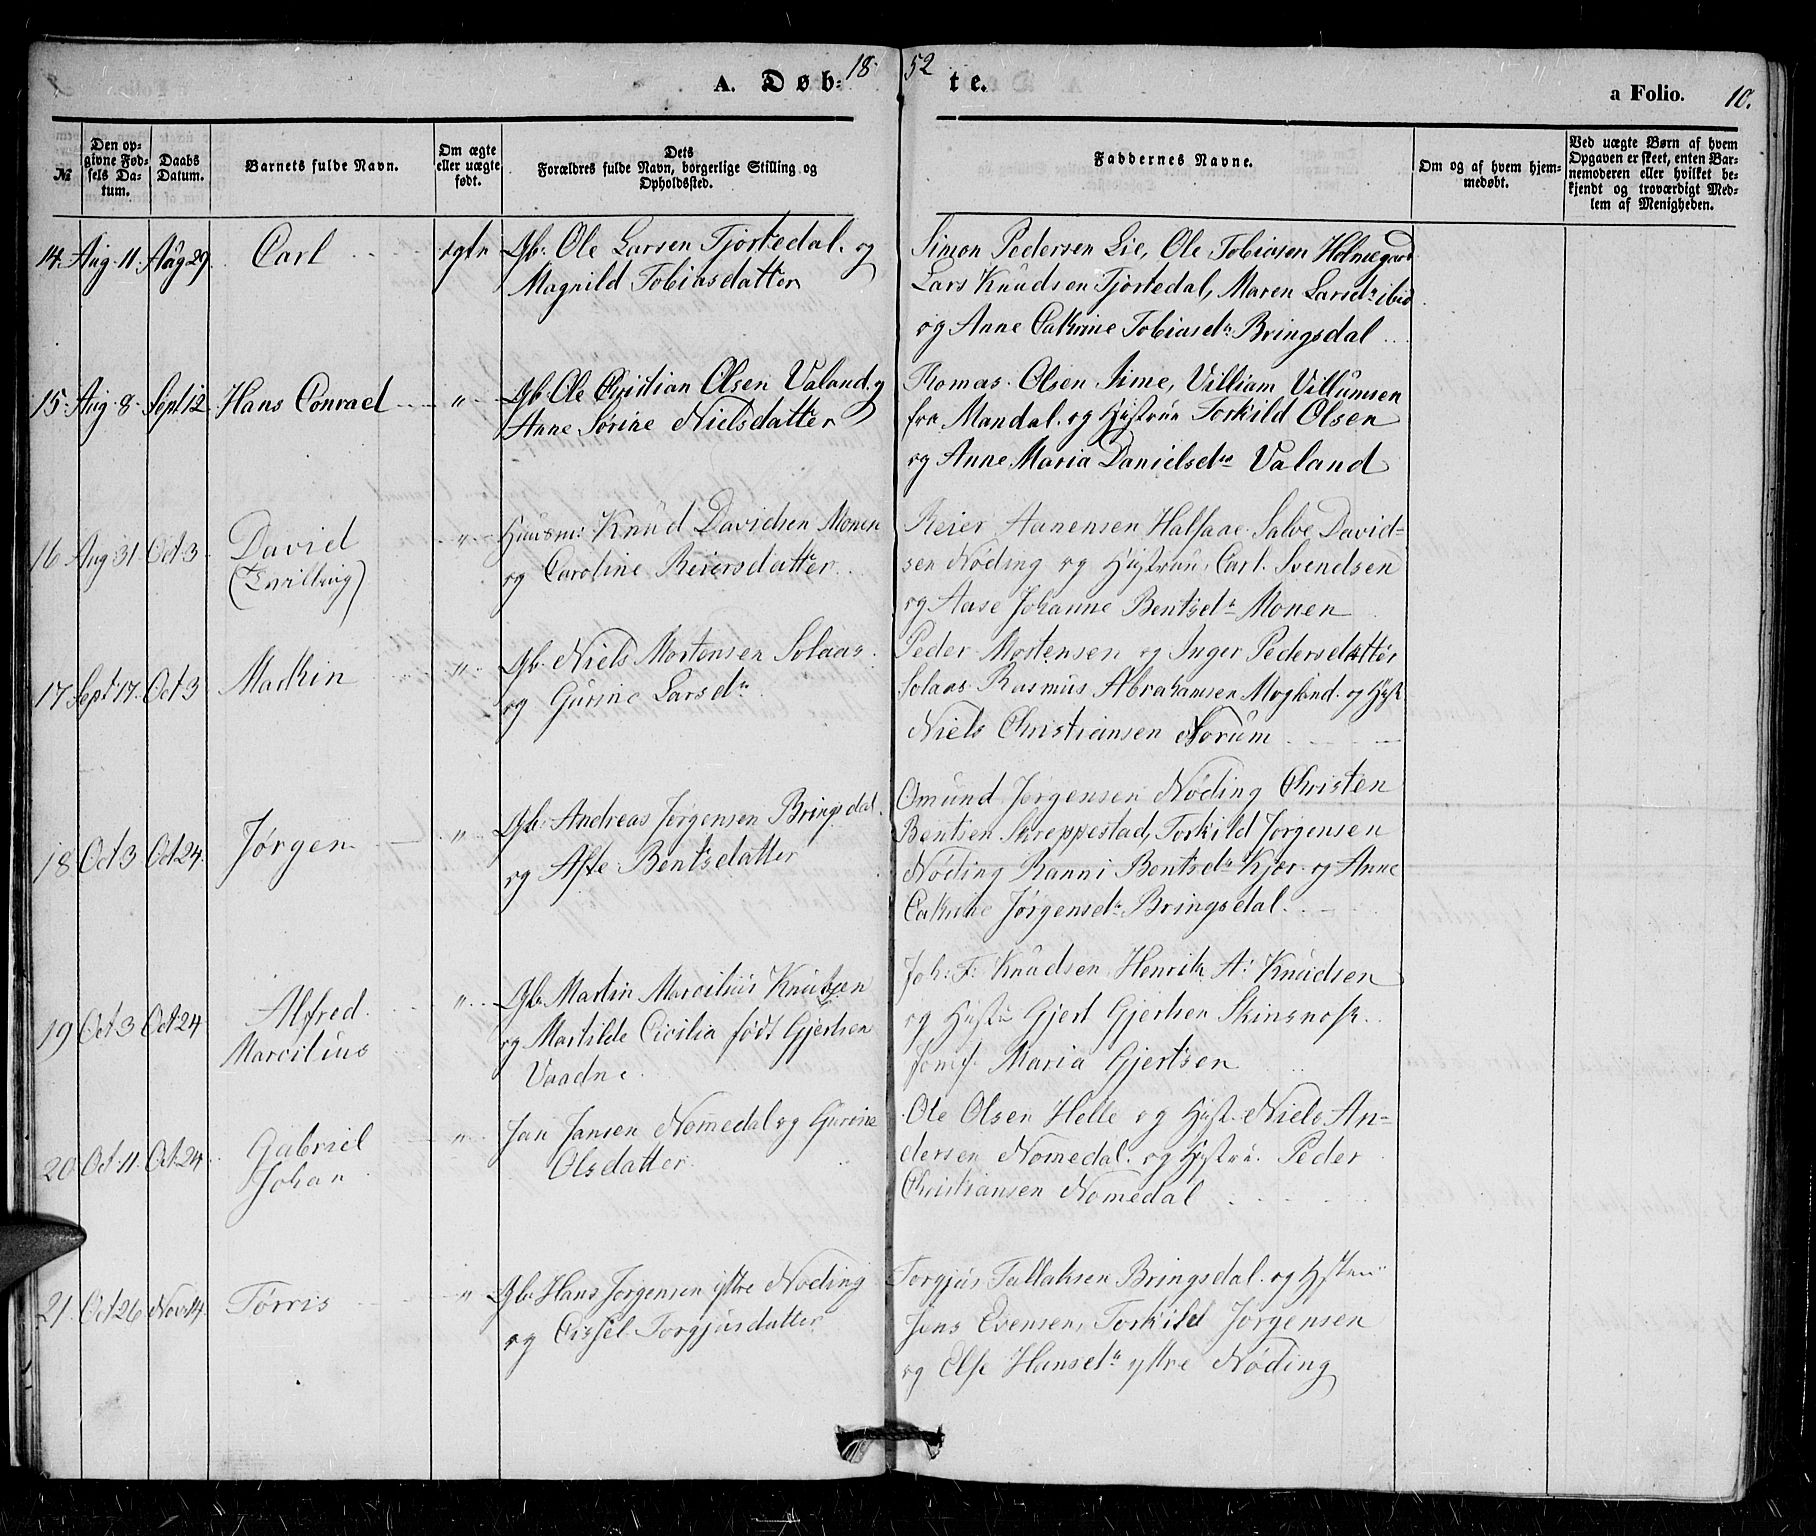 A. Døb= 18 52 te.
a Folio. 10.
№
Den op-
givne Fød-
sels Da-
tum.
Daabs
Datum.
Barnets fulde Navn.
Om ægte
eller uægte
født.
Dets
Forældres fulde Navn, borgerlige Stilling og
Opholdssted.
Faddernes Navne.
Om og af hvem hjem-
medøbt.
Ved uægte Børn af hvem
Opgaven er skeet, enten Bar-
nemoderen eller hvilket be-
kjendt og troværdigt Med-
lem af Menigheden.
14. Aug. 11. Aug 29. Carl ægte Gb. Ole Larsen Tjortedal. og
Magnild Tobiasdatter
Simon Pedersen Lie, Ole Tobiasen Holmegaard
Lars Knudsen Tjortedal, Maren Larsdr ibid
og Anne Cathrine Tobiasdr Bringsdal
15. Aug. 8. Sept. 12 Hans Conrad " Gb. Ole Christian Olsen Valand. og
Anne Sørine Nielsdatter
Thomas Olsen Sime, Villiam Villumsen
fra Mandal. og Hustrue Torkild Olsen
og Anne Maria Danielsdr Valand
16 Aug 31 Oct 3. David
(Tvilling)
" Huusm: Knud Davidsen Monen
og Caroline Reiersdatter
Reier Aanensen Halsaae Salve David-
sen Nøding og Hustrue, Carl Svendsen
og Aase Johanne Bentsdr Monen
17 Sept 17. Oct 3 Mathin " Gb. Niels Mortensen Solaas.
og Gurine Larsdr
Peder Mortensen og Inger Pedersdatter
Solaas Rasmus Abrahamsen Moglend. og Hust
Niels Christiansen Norum
18 Oct 3 Oct 24. Jørgen " Gb. Andreas Jørgensen Bringsdal.
og Aste Bentsdatter
Omund Jørgensen Nøding Christen
Bentsen Skreppestad, Torkild Jørgensen
Nøding Ranni Bentsdr Kjær. og Anne
Cathrine Jørgensdr Bringsdal.
19 Oct 3 Oct 24 Alfred
Marcilius
" Gb. Martin Marcilius Knutsen
og Martilde Cicilia født Gjertsen
Vaadne
Joh: F: Knudsen Henrik A: Knudsen
og Hustr Gjert Gjertsen Skinsnæs
Jomf. Maria Gjertsen
20 Oct. 11. Oct. 24. Gabriel
Johan
" Jan Jansen Nomedal og Gurine
Olsdatter
Ole Olsen Helle og Hust. Niels An-
dersen Nomedal. og Hustrue. Peder
Christiansen Nomedal
21. Oct 26 Nov. 14. Tørris " Gb. Hans Jørgensen ystre Nøding
og Cissel Torgjusdatter
Torgjus Tallaksen Bringsdal. og Hstrue
Jens Evensen, Torkild Jørgensen
og Else Hansdr ystre Nøding